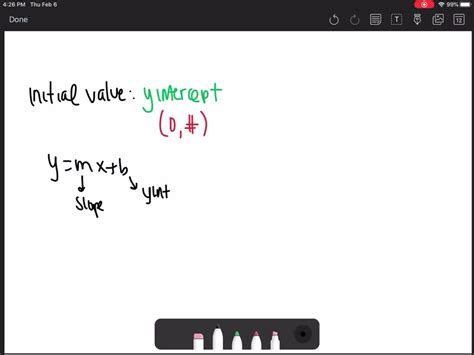 4:26 PM Thu Feb 6
99%
Done
T
12
initial value: yintercept
(0,#)
y=mx+b
slope
yint